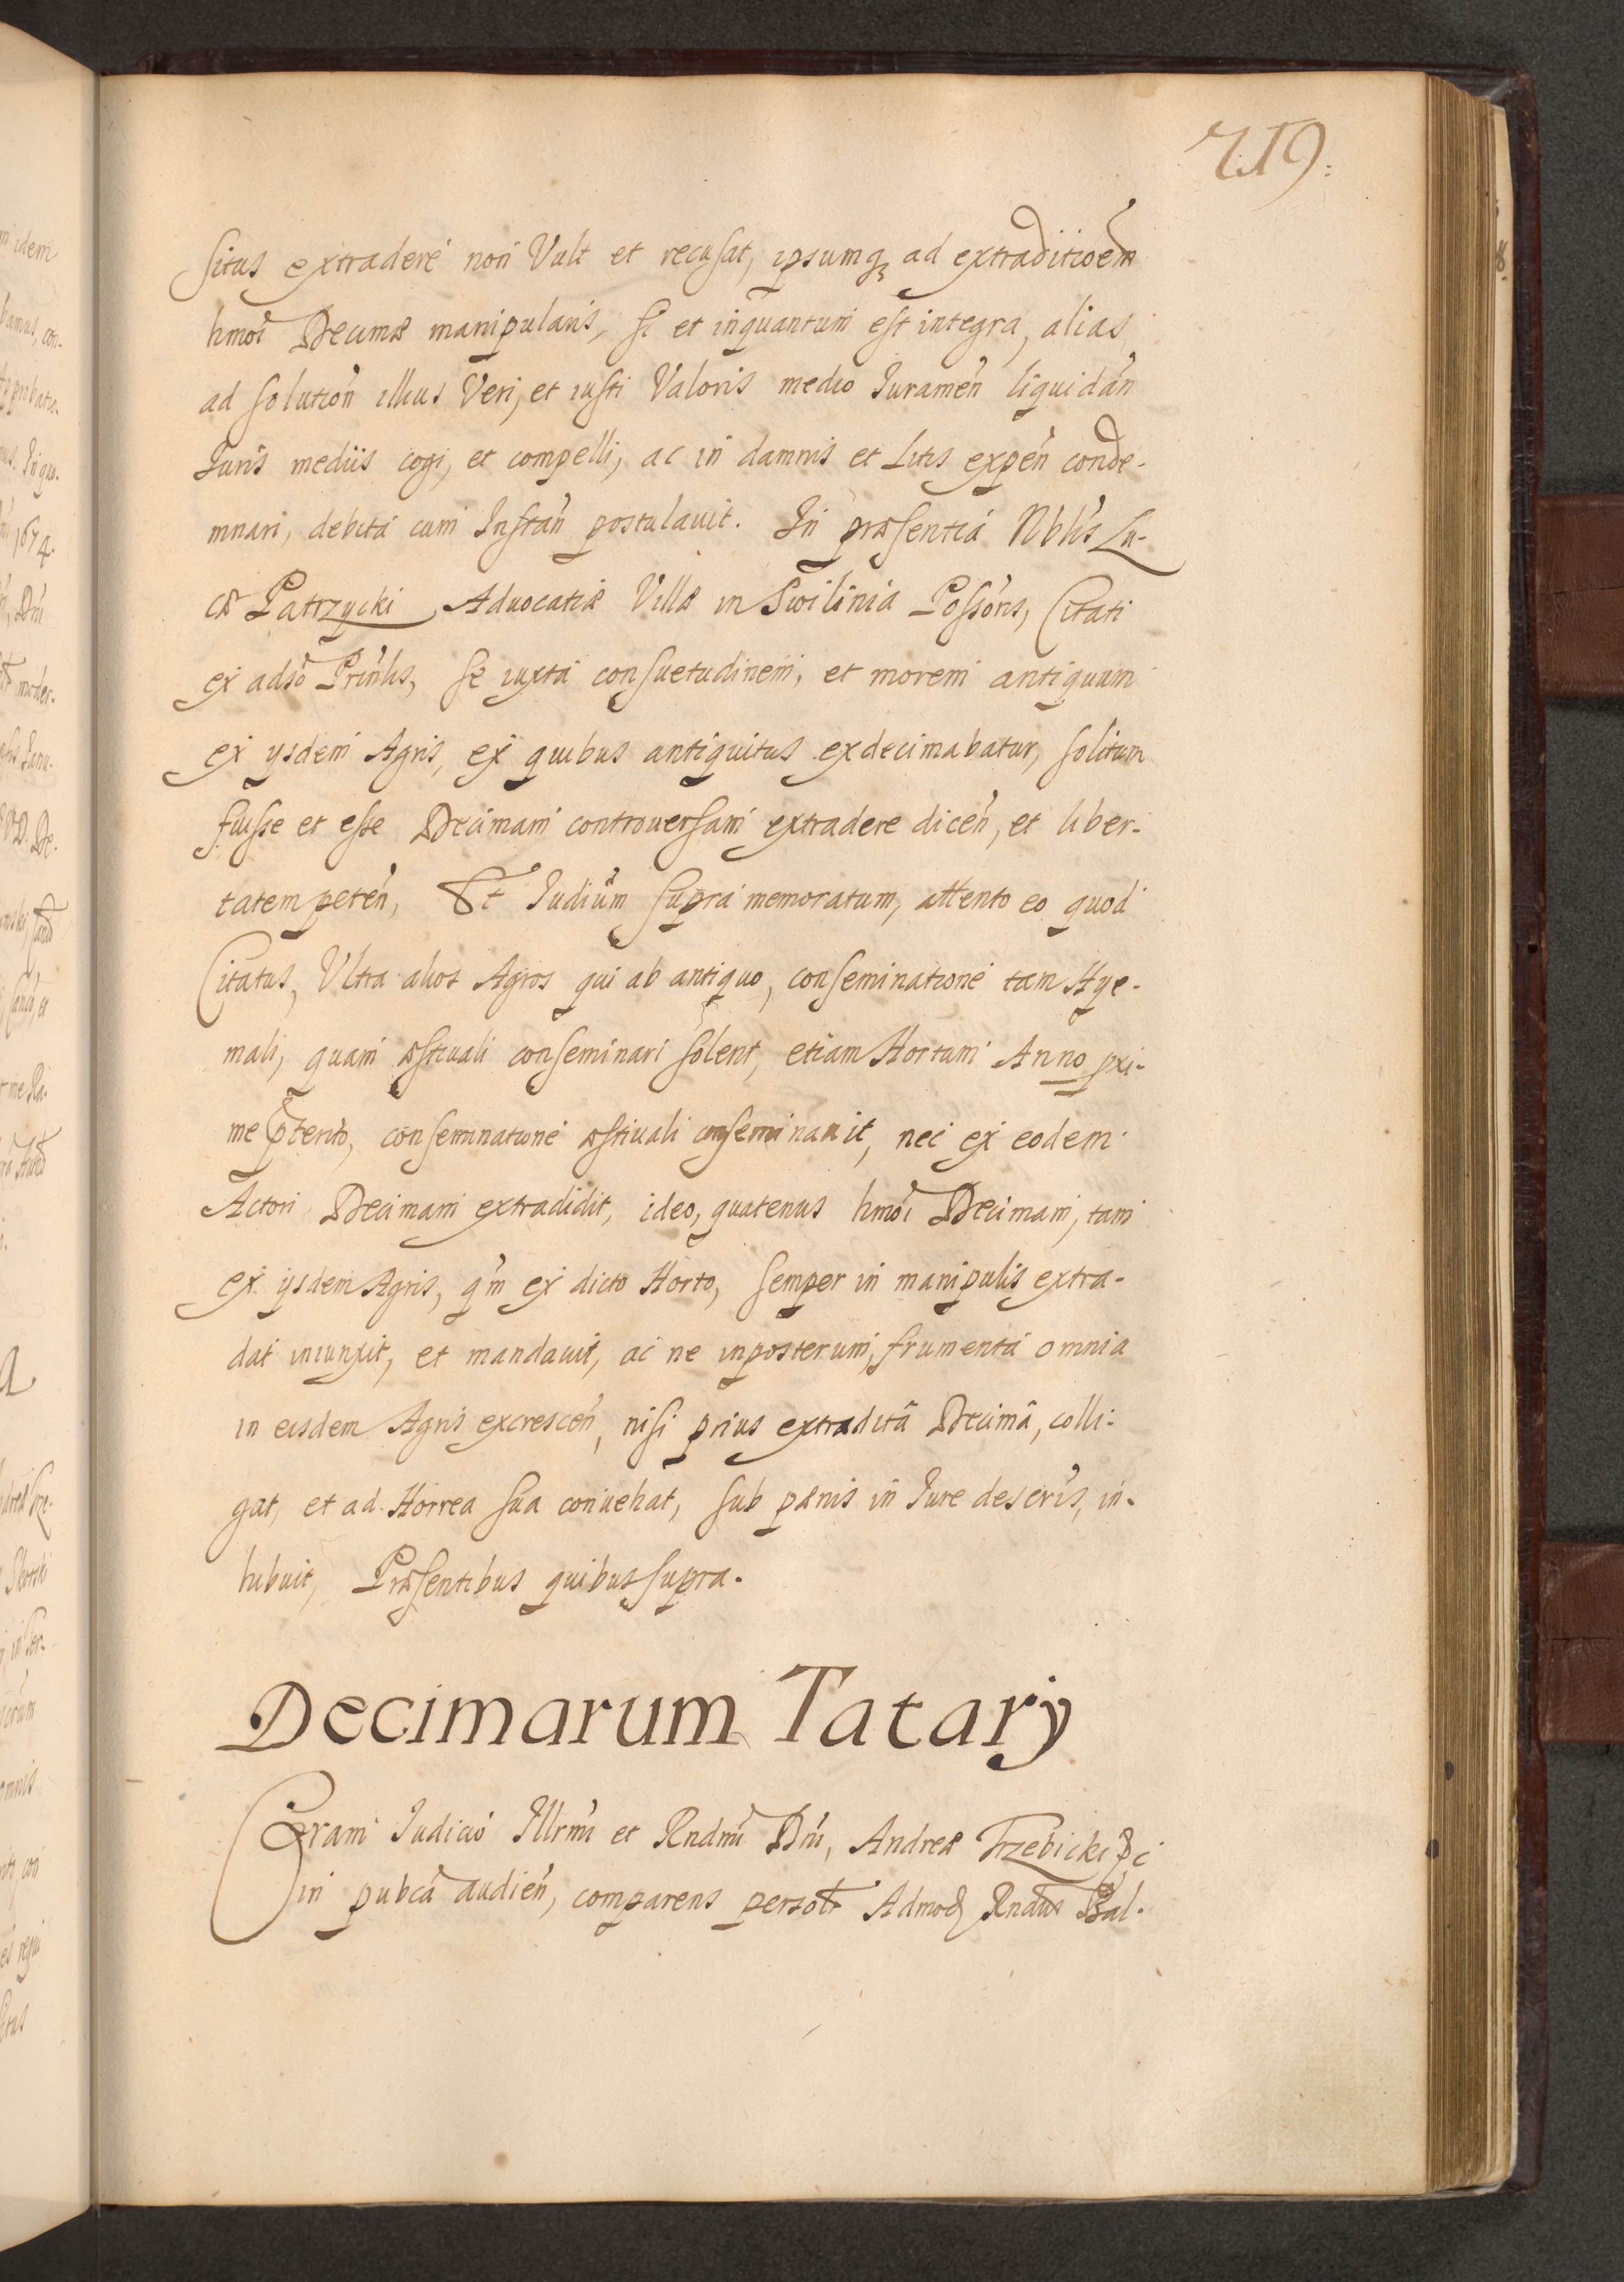 719:
situs extradere non Vult et recusat, ipsumq3 ad extraditioem
hmoi Decimæ manipularis, si et inquantum est integra, alias
ad solution illius Veri, et iusti Valoris medio Juramen liquidan
Juris mediis cogi, et compelli, ac in damnis et Litis expen conde-
mnari, debita cum Instan postulauit. In præsentia Nblis Lu-
cæ Patrzycki Aduocatiæ Villæ in Swilinia Possons, Citati
ex adso Prinlis, se iuxta consuetudinem, et morem antiquam
ex ysdem Agris, ex quibus antiquitus exdecimabatur, solitum
fuisse et esse Decimam controuersam extradere dicen, et liber-
tatem peten, Et Judium supra memoratum, attento eo quod
Citatus, Vltra alios Agros qui ab antiquo, conseminatione tam Hye-
mali, quam æstiuali conseminari solent, etiam Hortum Anno pxi-
me pterito, conseminatione æstiuali conseminauit, nec ex eodem
Actori Decimam extradidit, ideo, quatenus hmoi Decimam, tam
ex ysdem Agris, qm ex dicto Horto, semper in manipulis extra-
dat iniunxit, et mandauit, ac ne inposterum, frumenta omnia
in eisdem Agris excrescen, nisi prius extradita Decima, colli-
gat, et ad Horrea sua conuehat, sub pænis in Jure descris, in-
hibuit, Præsentibus quibus supra.
Decimarum Tatary
Coram Judicio Illrmi et Rndmi Dni, Andreæ Trzebicki
in pubca audien, comparens persolr Admod Rndus Bal-